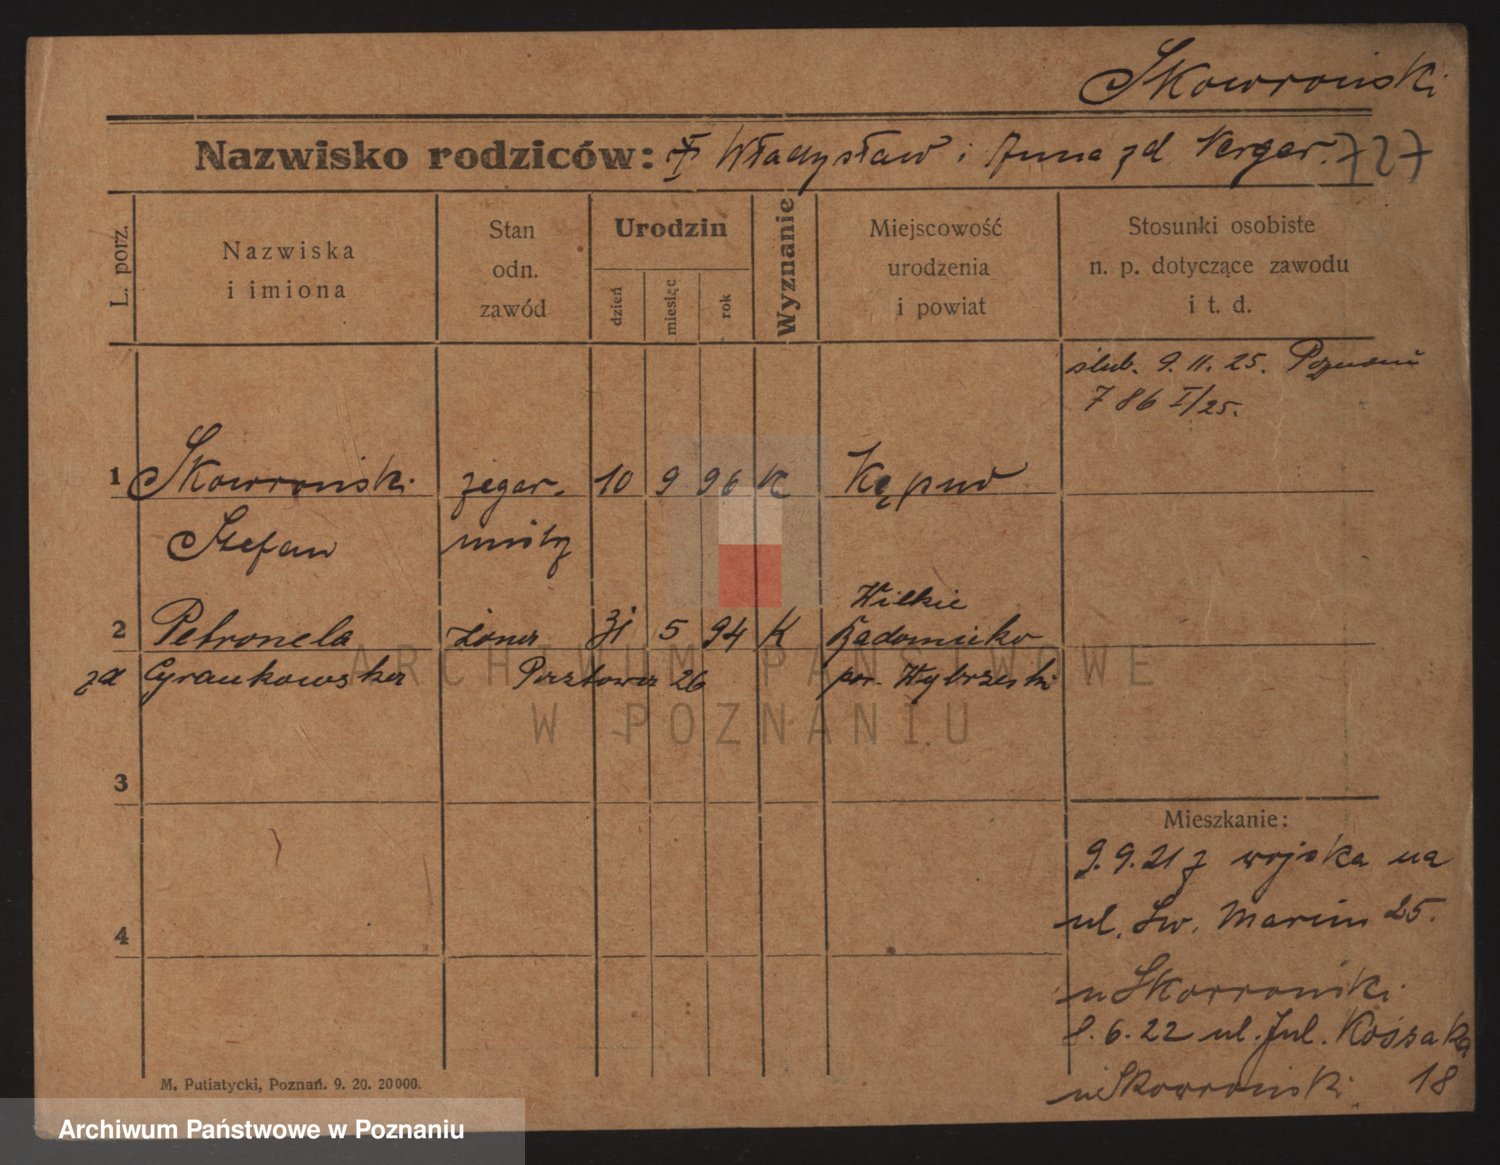 Skowroński
Nazwisko rodziców: Władysław i Anna zd Verger. 727
L. porz.
Nazwiska
i imiona
Stan
odn.
zawód
Urodzin
dzień
miesiąc
rok
Wyznanie
Miejscowość
urodzenia
i powiat
Stosunki osobiste
n. p. dotyczące zawodu
i t. d.
ślub. 9. 11. 25. Poznań
786 I/25.
1 Skowroński zegar- 10 9 96 K Kępno
Stefan mistrz
Wilkie
2 Petronela żona 31 5 94 K Radowisko
zd Cyrankowska 26 pow. Wybrzeski
3
4
Mieszkanie:
9.9.21 z wojska na
ul. Św. Marcin 25.
u Skowroński
8.6.22 ul. Jul. Kossaka
u Skowroński 18
M. Putiatycki, Poznań. 9. 20. 20000.
ARCHIWUM PAŃSTWOWE
W POZNANIU
Archiwum Państwowe w Poznaniu